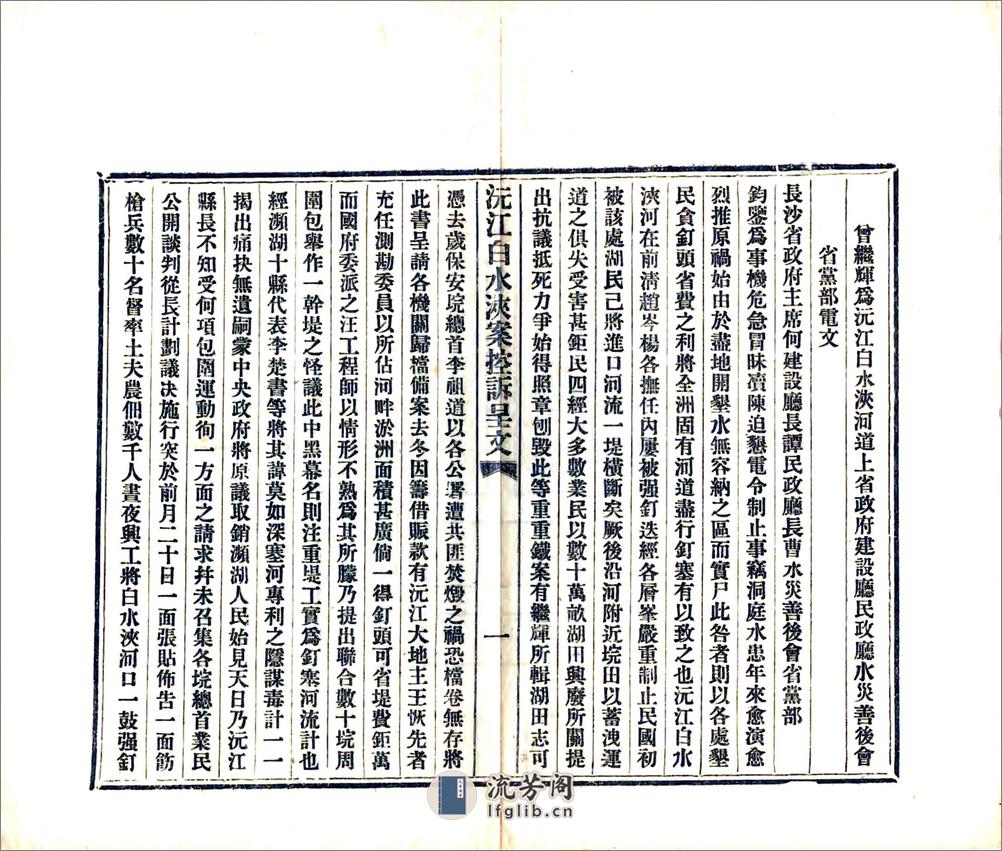 曾繼輝爲沅江白水浹河道上省政府建設廳民政廳水災善後會
省黨部電文
長沙省政府主席何建設廳長譚民政廳長曹水災善後會省黨部
鈞鑒爲事機危急冒昧瀆陳迫懇電令制止事竊洞庭水患年來愈演愈
烈推原禍始由於盡地開墾水無容納之區而實尸此咎者則以各處墾
民貪釘頭省費之利將全洲固有河道盡行釘塞有以致之也沅江白水
浹河在前清趙岑楊各撫任內屢被强釘迭經各層峯嚴重制止民國初
被該處湖民己將進口河流一堤橫斷矣厥後沿河附近垸田以蓄洩運
道之俱失受害甚鉅民四經大多數業民以數十萬畝湖田興廢所關提
出抗議抵死力爭始得照章刨毀此等重重鐵案有繼輝所輯湖田志可
沅江白水浹案控訴呈文
一
憑去歲保安垸總首李祖道以各公署遭共匪焚燬之禍恐檔卷無存將
此書呈請各機關歸檔備案去冬因籌借賑款有沅江大地主王恢先者
充任測勘委員以所佔河畔淤洲面積甚廣倘一得釘頭可省堤費鉅萬
而國府委派之汪工程師以情形不熟爲其所朦乃提出聯合數十垸周
圍包舉作一幹堤之怪議此中黑幕名則注重堤工實爲釘寨河流計也
經瀕湖十縣代表李楚書等將其諱莫如深塞河專利之隱謀毒計一一
揭出痛抉無遺嗣蒙中央政府將原議取銷瀕湖人民始見天日乃沅江
縣長不知受何項包圍運動徇一方面之請求幷未召集各垸總首業民
公開談判從長計劃議决施行突於前月二十日一面張貼佈告一面飭
槍兵數十名督率土夫農佃數千人晝夜興工將白水浹河口一鼓强釘
流芳阁
lfglib.cn